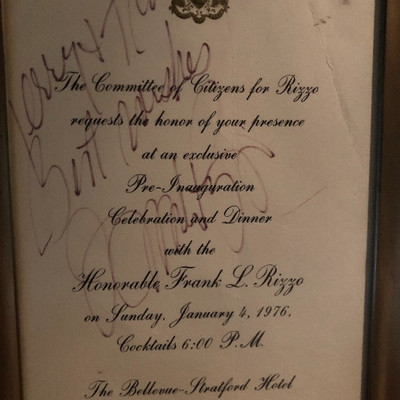 Jerry &
Best Wishes
The Committee of Citizens for Rizzo
requests the honor of your presence
at an exclusive
Pre-Inauguration
Celebration and Dinner
with the
Honorable Frank L. Rizzo
on Sunday, January 4, 1976.
Cocktails 6:00 P.M.
The Bellevue-Stratford Hotel